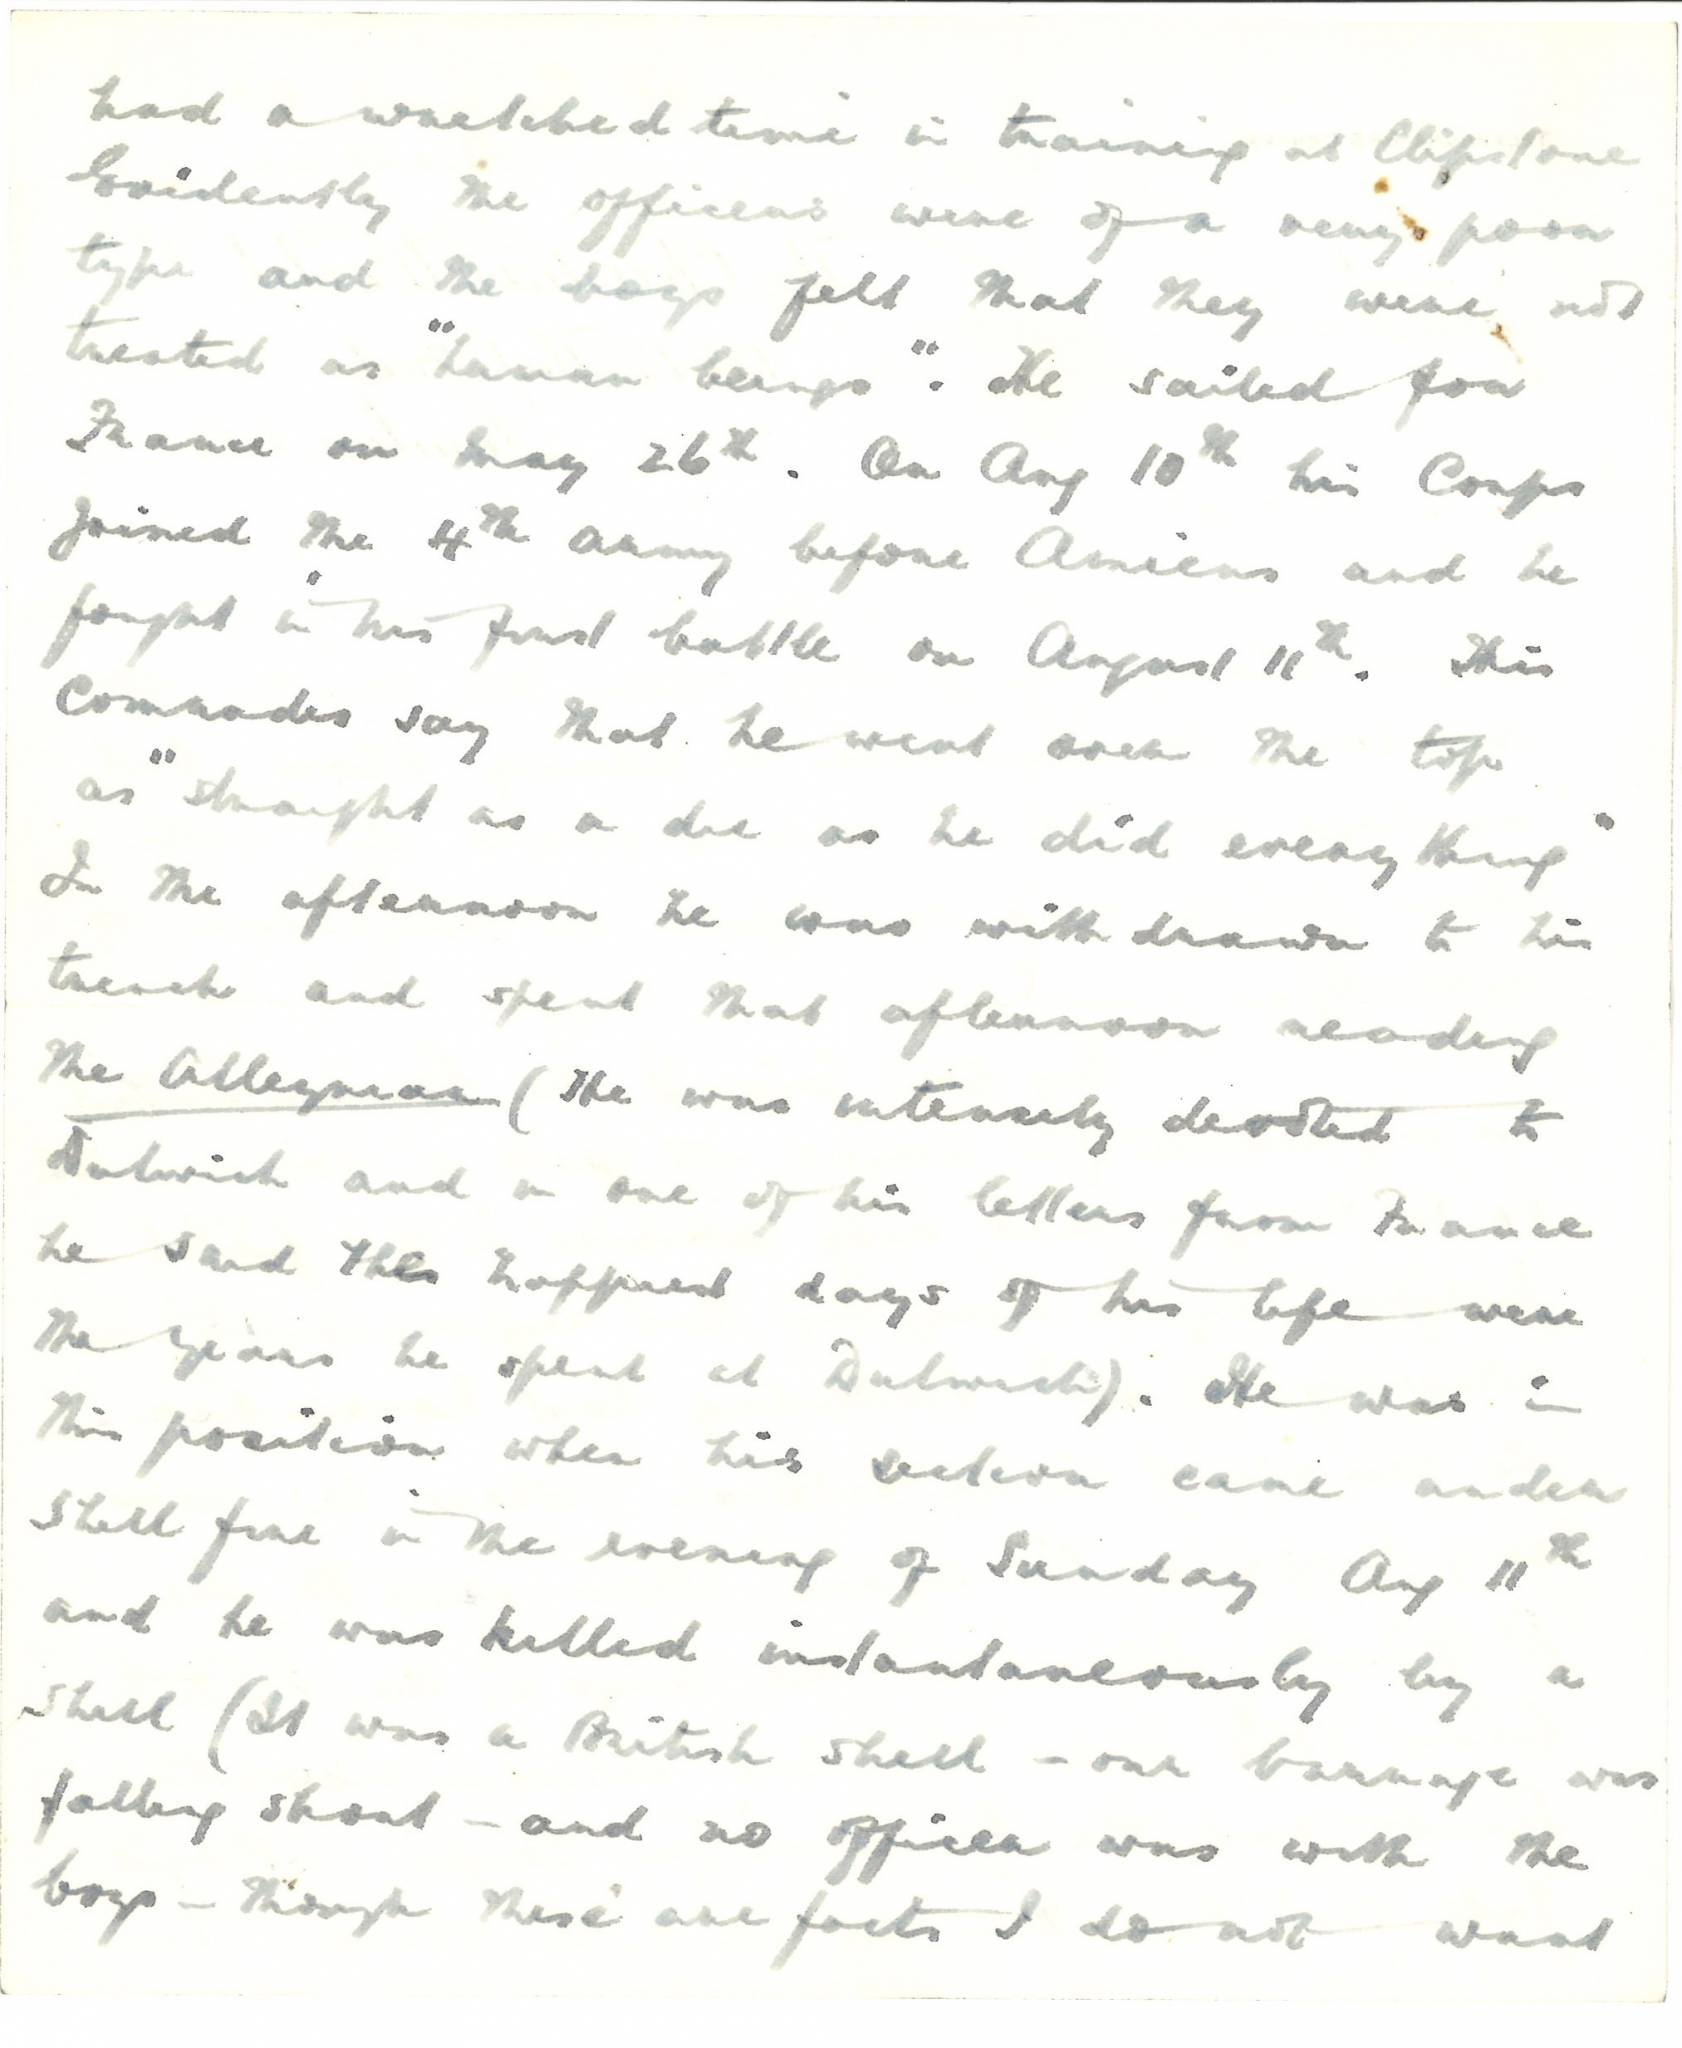 had a wretched time in training at Clipstone
Evidently the officers were of a very poor
type and the boys felt that they were not
treated as "human beings". He sailed for
France on May 26th. On Aug 10th his Corps
joined the 4th army before Amiens and he
fought in his first battle on August 11th. His
Comrades say that he went over the top
as "straight as a die as he did everything"
In the afternoon he was withdrawn to his
trench and spent that afternoon reading
the Alleynian (He was intensely devoted to
Dulwich and in one of his letters from France
he said the happiest days of his life were
the years he spent at Dulwich). He was in
this position when his section came under
shell fire in the evening of Sunday Aug 11th
and he was killed instantaneously by a
shell (It was a British shell – our barrage was
falling short – and no officer was with the
boys – though these are facts I do not want